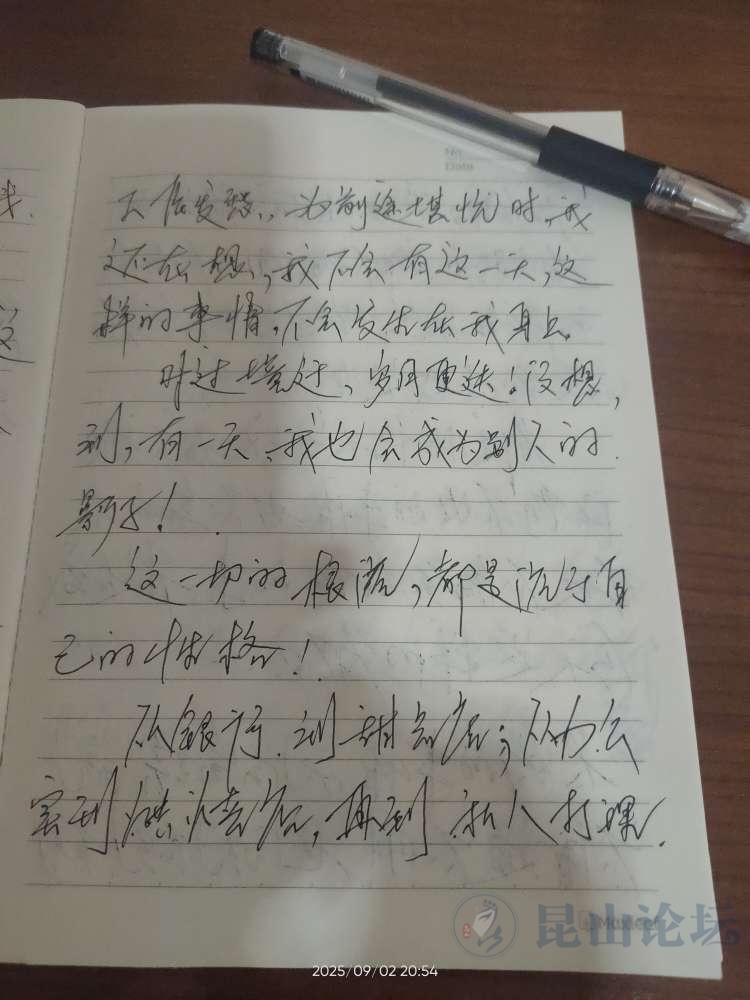 为前途堪忧时,我
还在想,我不会有这一天,这
样的事情,不会发生在我身上
时过境迁,岁月更迭!没想,
到,有一天、我也会成为别人的.
影子!
这一切的根源,都是源于自
己的性格!
从银行、到甜品店;从办公
室到烘焙店,再到 私人打理.
昆山论坛
2025/09/02 20:54